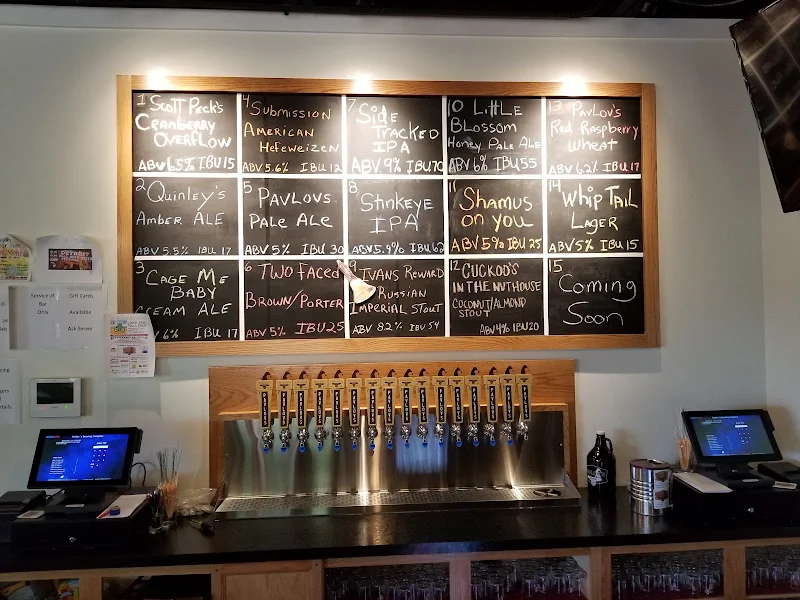 1 Scott Peck's
Cranberry
Overflow
ABV 6.5% IBU 15
4 Submission
American
Hefeweizen
ABV 5.6% IBU 12
7 Side
Tracked
IPA
ABV 9% IBU 70
10 Little
Blossom
Honey Pale Ale
ABV 6% IBU 55
13 Pavlov's
Red Raspberry
Wheat
ABV 6.2% IBU 17
2 Quinley's
Amber ALE
ABV 5.5% IBU 17
5 Pavlovs
Pale Ale
ABV 5% IBU 30
8 Stnkeye
IPA
ABV 5.9% IBU 62
11 Shamus
on you
ABV 5% IBU 25
14 Whip Tail
Lager
ABV 5% IBU 15
3 Cage Me
Baby
Cream Ale
6% IBU 17
6 Two Faced
Brown/Porter
ABV 5% IBU 25
9 Ivans Reward
Russian
Imperial Stout
ABV 8.2% IBU 54
12 Cuckoo's
in the Nuthouse
Coconut/Almond
Stout
ABV 4% IBU 20
15
Coming
Soon
DETROIT
Service at
Bar
Only
Gift Cards
Available
Ask Server